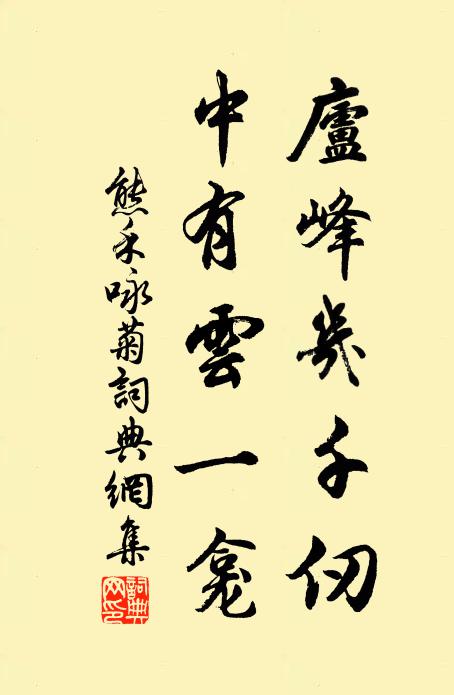 廬峰幾千仞
中有雲一龛
熊禾咏菊詞典網集
詞典网印